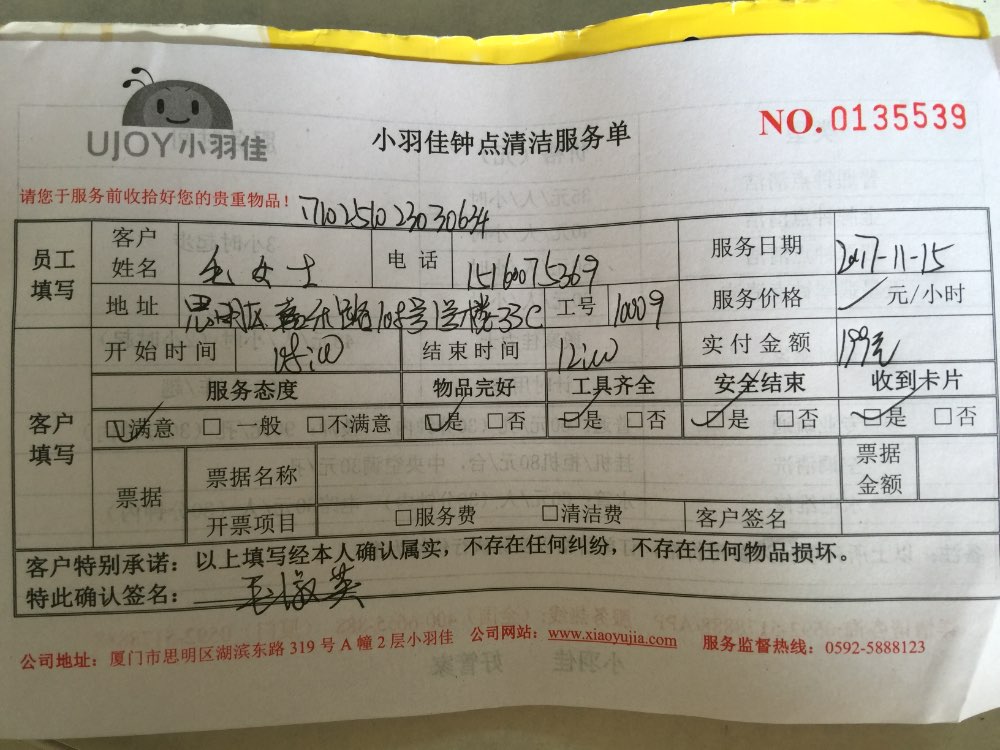 UJOY小羽佳
小羽佳钟点清洁服务单
NO.0135539
请您于服务前收拾好您的贵重物品!
员工填写
客户姓名 女士 电话 15160075369 服务日期 2017-11-15
地址 思明区 108号 号楼33C 工号 10009 服务价格 元/小时
开始时间 结束时间 12:00 实付金额 199元
客户填写
服务态度 物品完好 工具齐全 安全结束 收到卡片
☑满意 □一般 □不满意 ☑是 □否 ☑是 □否 ☑是 □否 ☑是 □否
票据 票据名称 票据金额
开票项目 □服务费 □清洁费 客户签名
客户特别承诺：以上填写经本人确认属实，不存在任何纠纷，不存在任何物品损坏。
特此确认签名：
公司地址：厦门市思明区湖滨东路 319 号 A 幢 2 层小羽佳 公司网站：www.xiaoyujia.com 服务监督热线：0592-5888123